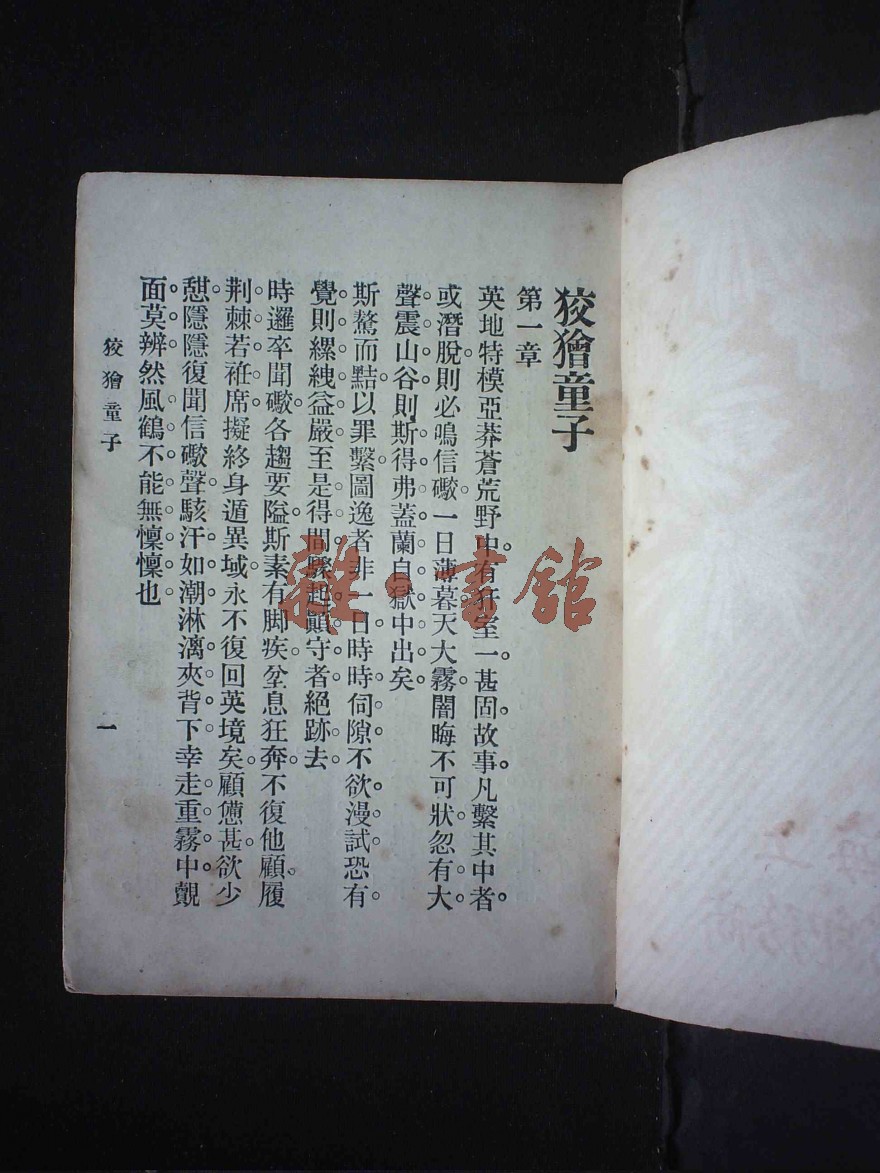 狡獪童子
第一章
英地特模亞莽蒼荒野中。有狂室一甚固。故事。凡繫其中者。
或潛脫。則必鳴信礮。一日薄暮。天大霧。闇晦不可狀。忽有大
聲震山谷。則斯得弗蓋蘭自獄中出矣。
斯驁而黠。以罪繫。圖逸者非一日。時時伺隙。不欲漫試。恐有
覺。則縲絏益嚴。至是得間。驟起顚守者。絕跡去。
時邏卒聞礮。各趨要隘。斯素有脚疾。坌息狂奔。不復他顧。履
荆棘若袵席。擬終身遁異域。永不復回英境矣。顧憊甚。欲少
憇。隱隱復聞信礮聲。駭汗如潮。淋漓夾背下。幸走重霧中。覿
面莫辨。然風鶴不能無懍懍也。
狡獪童子
一
雜·書館